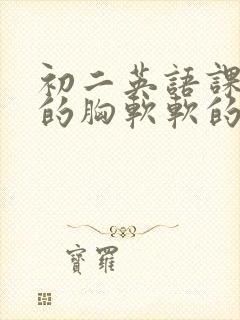 初二英語課
的胸軟軟的
寶羅